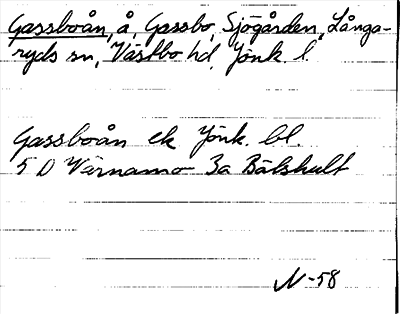 Gassboån, å, Gassbo, Sjögården, Långa-
ryds sn, Västbo hd, Jönk. l.
Gassboån ek Jönk. bl.
5 D Värnamo 3a Bälshult
N-58